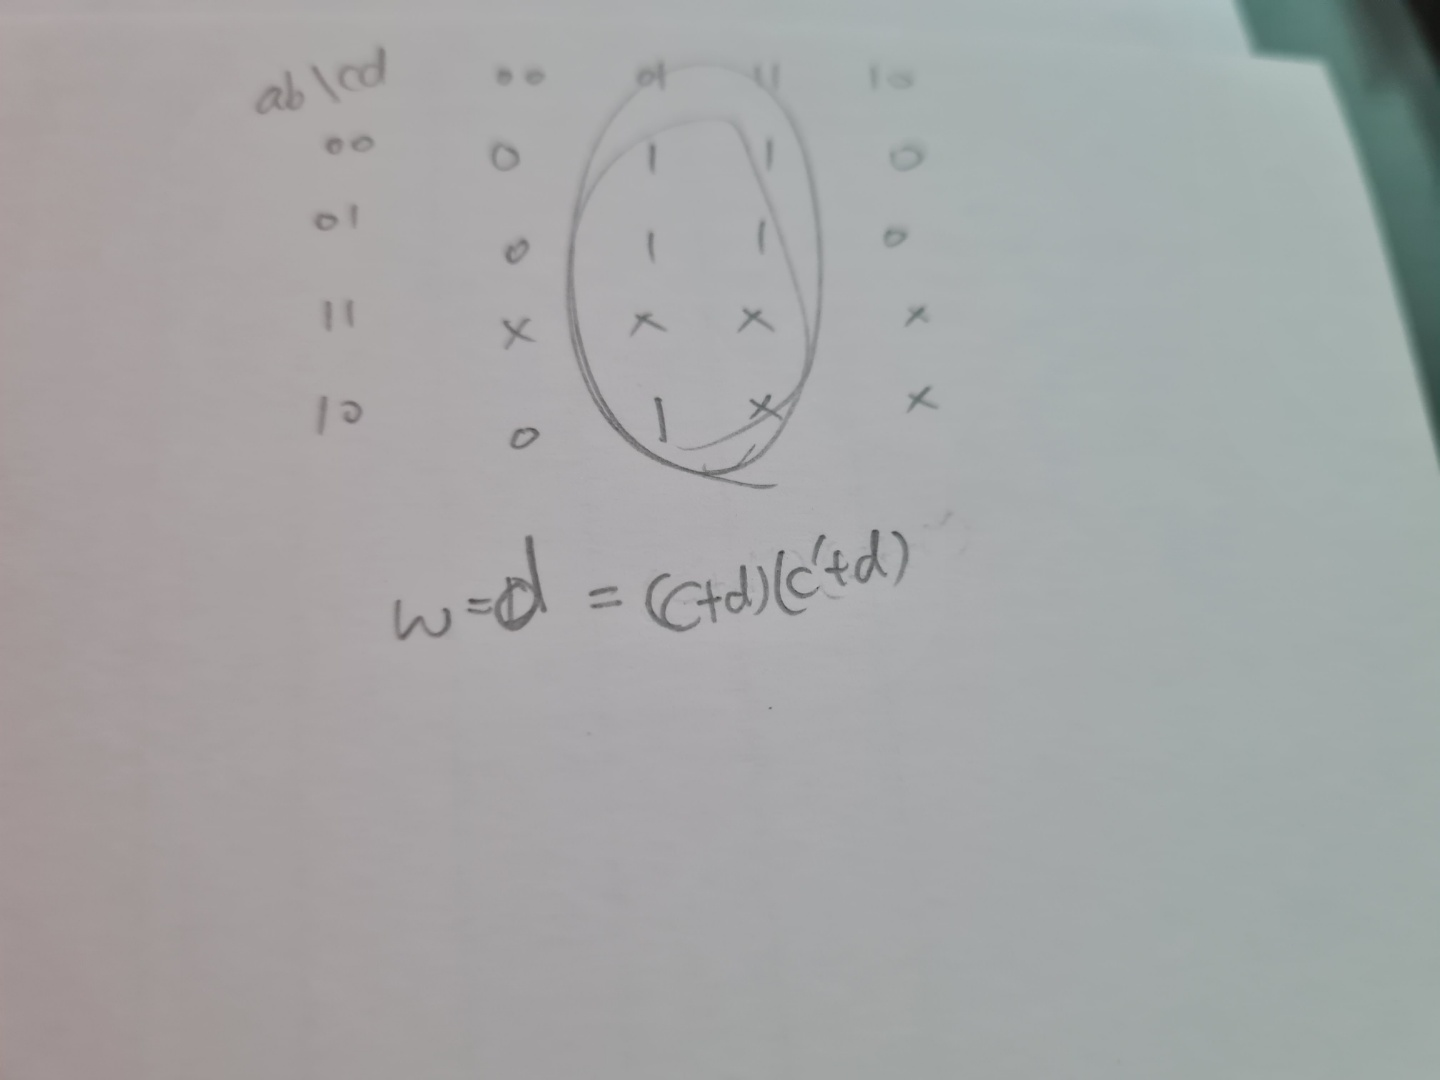 ab\cd 00 01 11 10
00 0 1 1 0
01 0 1 1 0
11 x x x x
10 0 1 x x
w=d = (c+d)(c'+d)